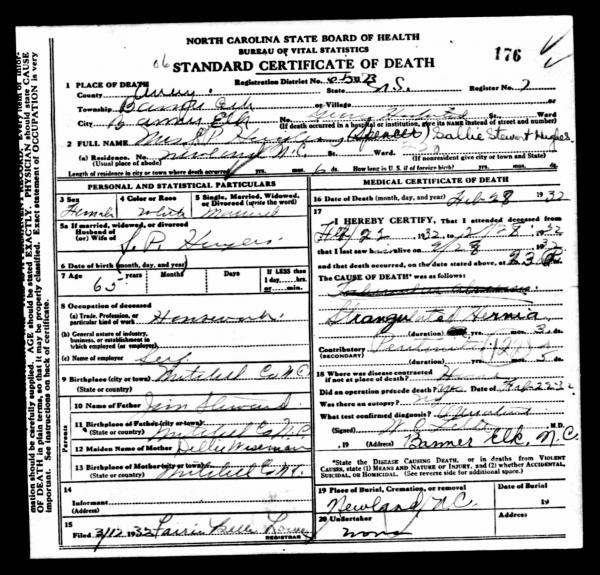 NORTH CAROLINA STATE BOARD OF HEALTH
BUREAU OF VITAL STATISTICS
06 STANDARD CERTIFICATE OF DEATH 176
1 PLACE OF DEATH Registration District No.
County Avery State N.S. Register No. 7
Township Banner Elk or Village
City Banner Elk No. St. Ward
(If death occurred in a hospital or institution, give its NAME instead of street and number)
2 FULL NAME Mrs J.P. (Spencer) Sallie Stewart Hughes
(a) Residence. No. Newland N.C. St. Ward.
(Usual place of abode) (If nonresident give city or town and State)
Length of residence in city or town where death occurred yrs. 6 mos. ds. How long in U. S. if of foreign birth? yrs. mos. ds.
PERSONAL AND STATISTICAL PARTICULARS
3 Sex 4 Color or Race 5 Single, Married, Widowed, or Divorced (write the word)
Female White Married
5a If married, widowed, or divorced
Husband of
(or) Wife of J. P. Hughes
6 Date of birth (month, day, and year)
7 Age Years Months Days If LESS than
65 1 day,....hrs.
or....min.
8 Occupation of deceased
(a) Trade, Profession, or particular kind of work Housework
(b) General nature of industry, business, or establishment in which employed (or employer)
(c) Name of employer Self
9 Birthplace (city or town) Mitchell Co N.C.
(State or country)
Parents
10 Name of Father Jim Steward
11 Birthplace of Father (city or town)
(State or country) Mitchell Co N.C.
12 Maiden Name of Mother Dellie Wiseman
13 Birthplace of Mother (city or town)
(State or country) Mitchell Co N.C.
14
Informant
(Address)
15
Filed 3/12 1932 REGISTRAR
MEDICAL CERTIFICATE OF DEATH
16 Date of Death (month, day, and year) Feb 28 1932
17
I HEREBY CERTIFY, That I attended deceased from
Feb 22 1932 to 2/28 1932
that I last saw h alive on 2/28 1932
and that death occurred, on the date stated above, at
The CAUSE OF DEATH* was as follows:
Strangulated Hernia
(duration) yrs. mos. 3 ds.
Contributory Peritonitis
(SECONDARY) (duration) yrs. mos. 5 ds.
18 Where was disease contracted
if not at place of death? Home
Did an operation precede death? yes Date of Feb 22 32
Was there an autopsy? No
What test confirmed diagnosis?
(Signed) M.D.
, 19 (Address) Banner Elk, N.C.
*State the DISEASE CAUSING DEATH, or in deaths from VIOLENT CAUSES, state (1) MEANS AND NATURE OF INJURY, and (2) whether ACCIDENTAL, SUICIDAL, OR HOMICIDAL. (See reverse side for additional space.)
19 Place of Burial, Cremation, or removal Date of Burial
Newland N.C. 19
20 Undertaker Address
none
mation should be carefully supplied. AGE should be stated EXACTLY. PHYSICIAN should state CAUSE
OF DEATH in plain terms, so that it may be properly classified. Exact statement of OCCUPATION is very
important. See instructions on back of certificate.